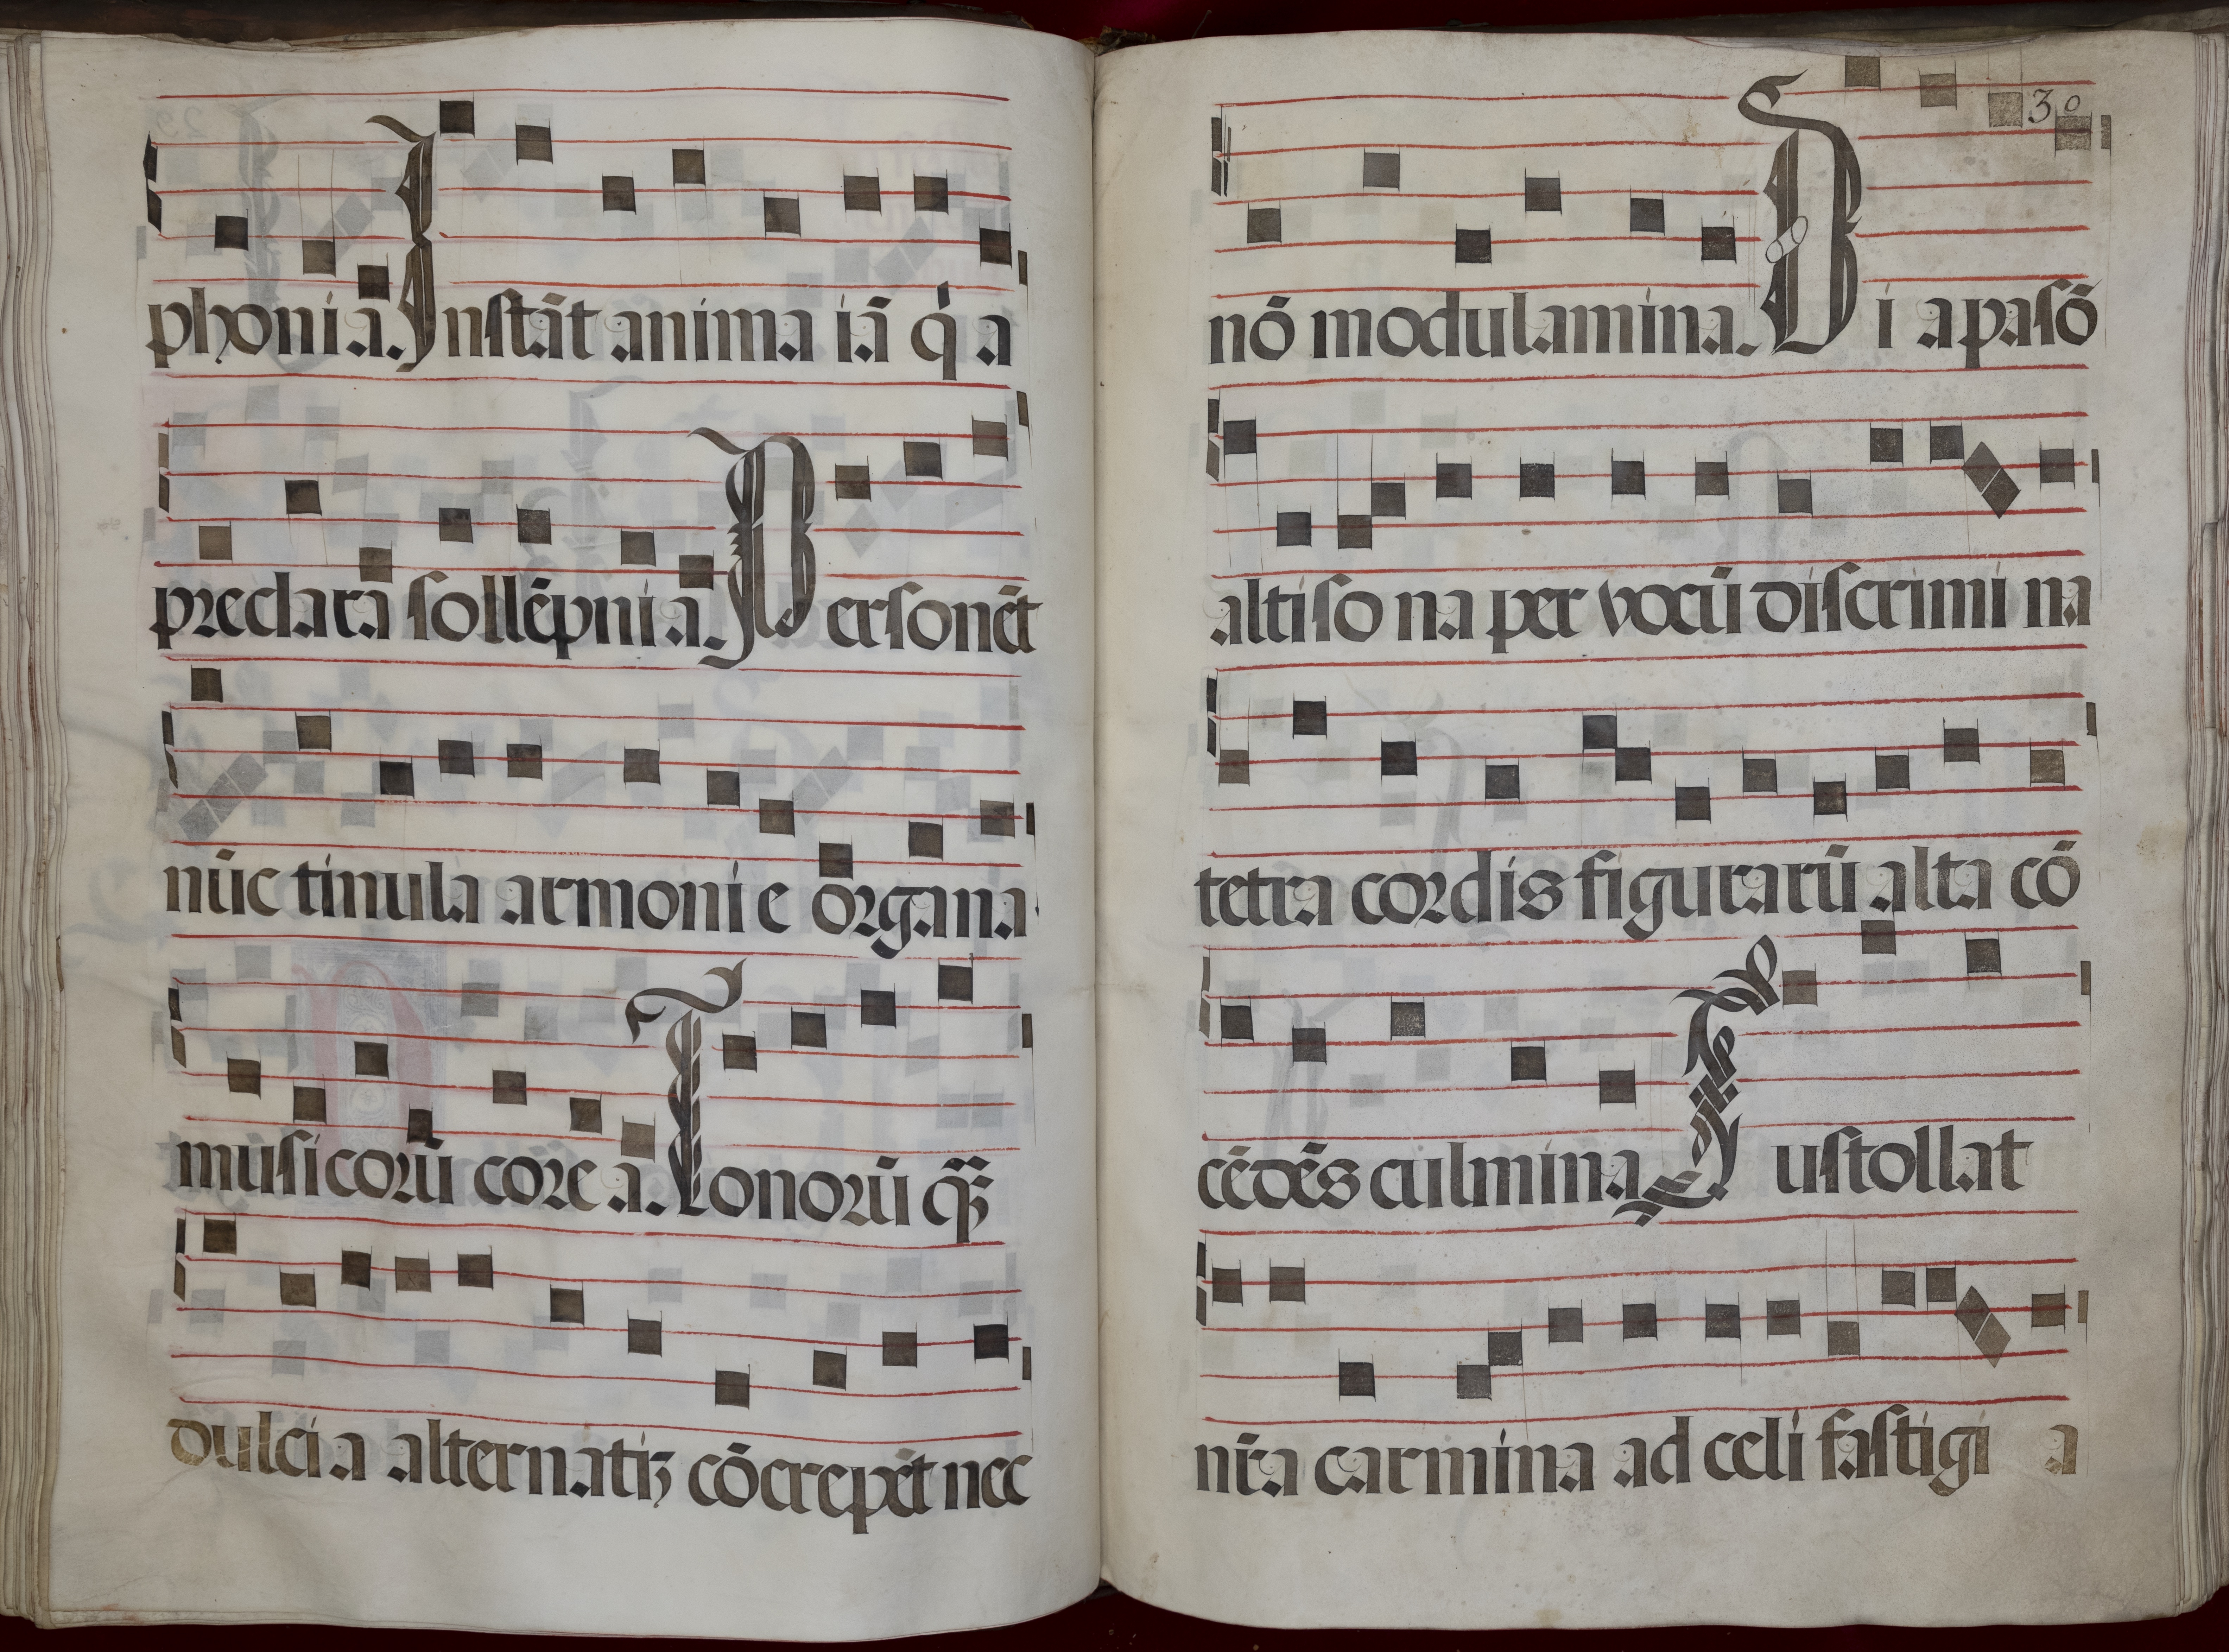 phonia. Instāt anima iā q̇ a
preclara sollēpnia. Personēt
nūc tinula armonie organa
musicorū corea. Tonorū qꝫ̄
dulcia alternatiꝫ cōcrepēt nec
30
nō modulamina. Diapasō
altisona per vocū discrimina
tetracordis figurarū alta cō
cēdēs culmina Sustollat
nr̄a carmina ad celi fastigia